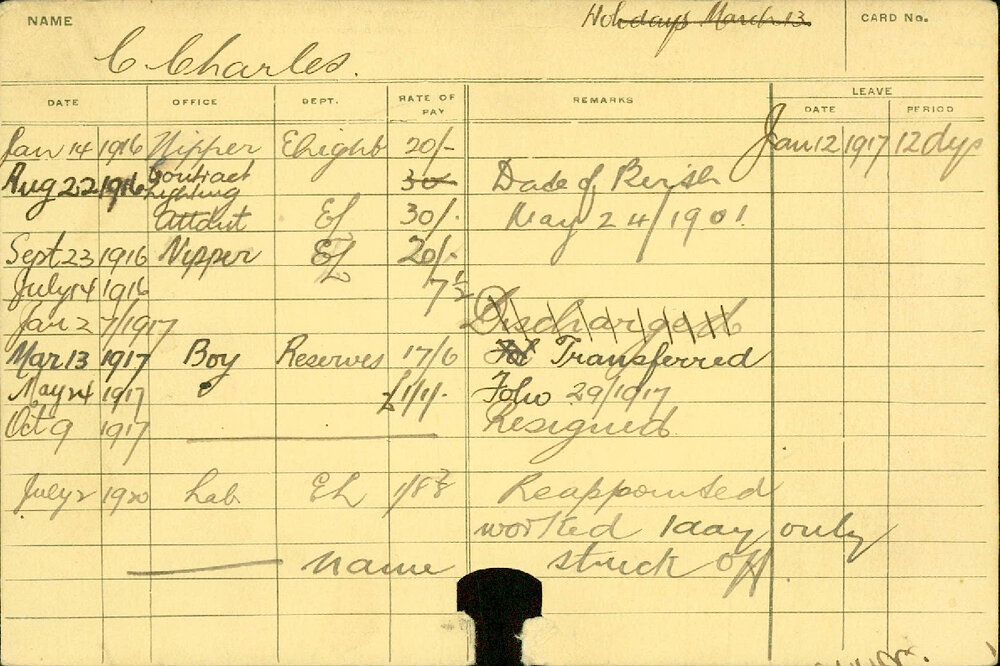 NAME
Holidays March 13
CARD No.
C Charles.
LEAVE
DATE OFFICE DEPT. RATE OF PAY REMARKS DATE PERIOD
Jan 14 1916 Nipper Elight 20/- Jan 12 1917 12 dys
Aug 22 1916 Contract 30/- Date of Birth
Lighting
Attdnt EL 30/- May 24/1901
Sept 23 1916 Nipper EL 20/-
July 14 1916 7½
Jan 27/1917 Discharged
Mar 13 1917 Boy Reserves 17/6 Transferred
May 24 1917 £1/1/- Folio 29/1917
Oct 9 1917 Resigned
July 2 1920 Lab EL 1/8 Reappointed
worked 1 day only
name struck off